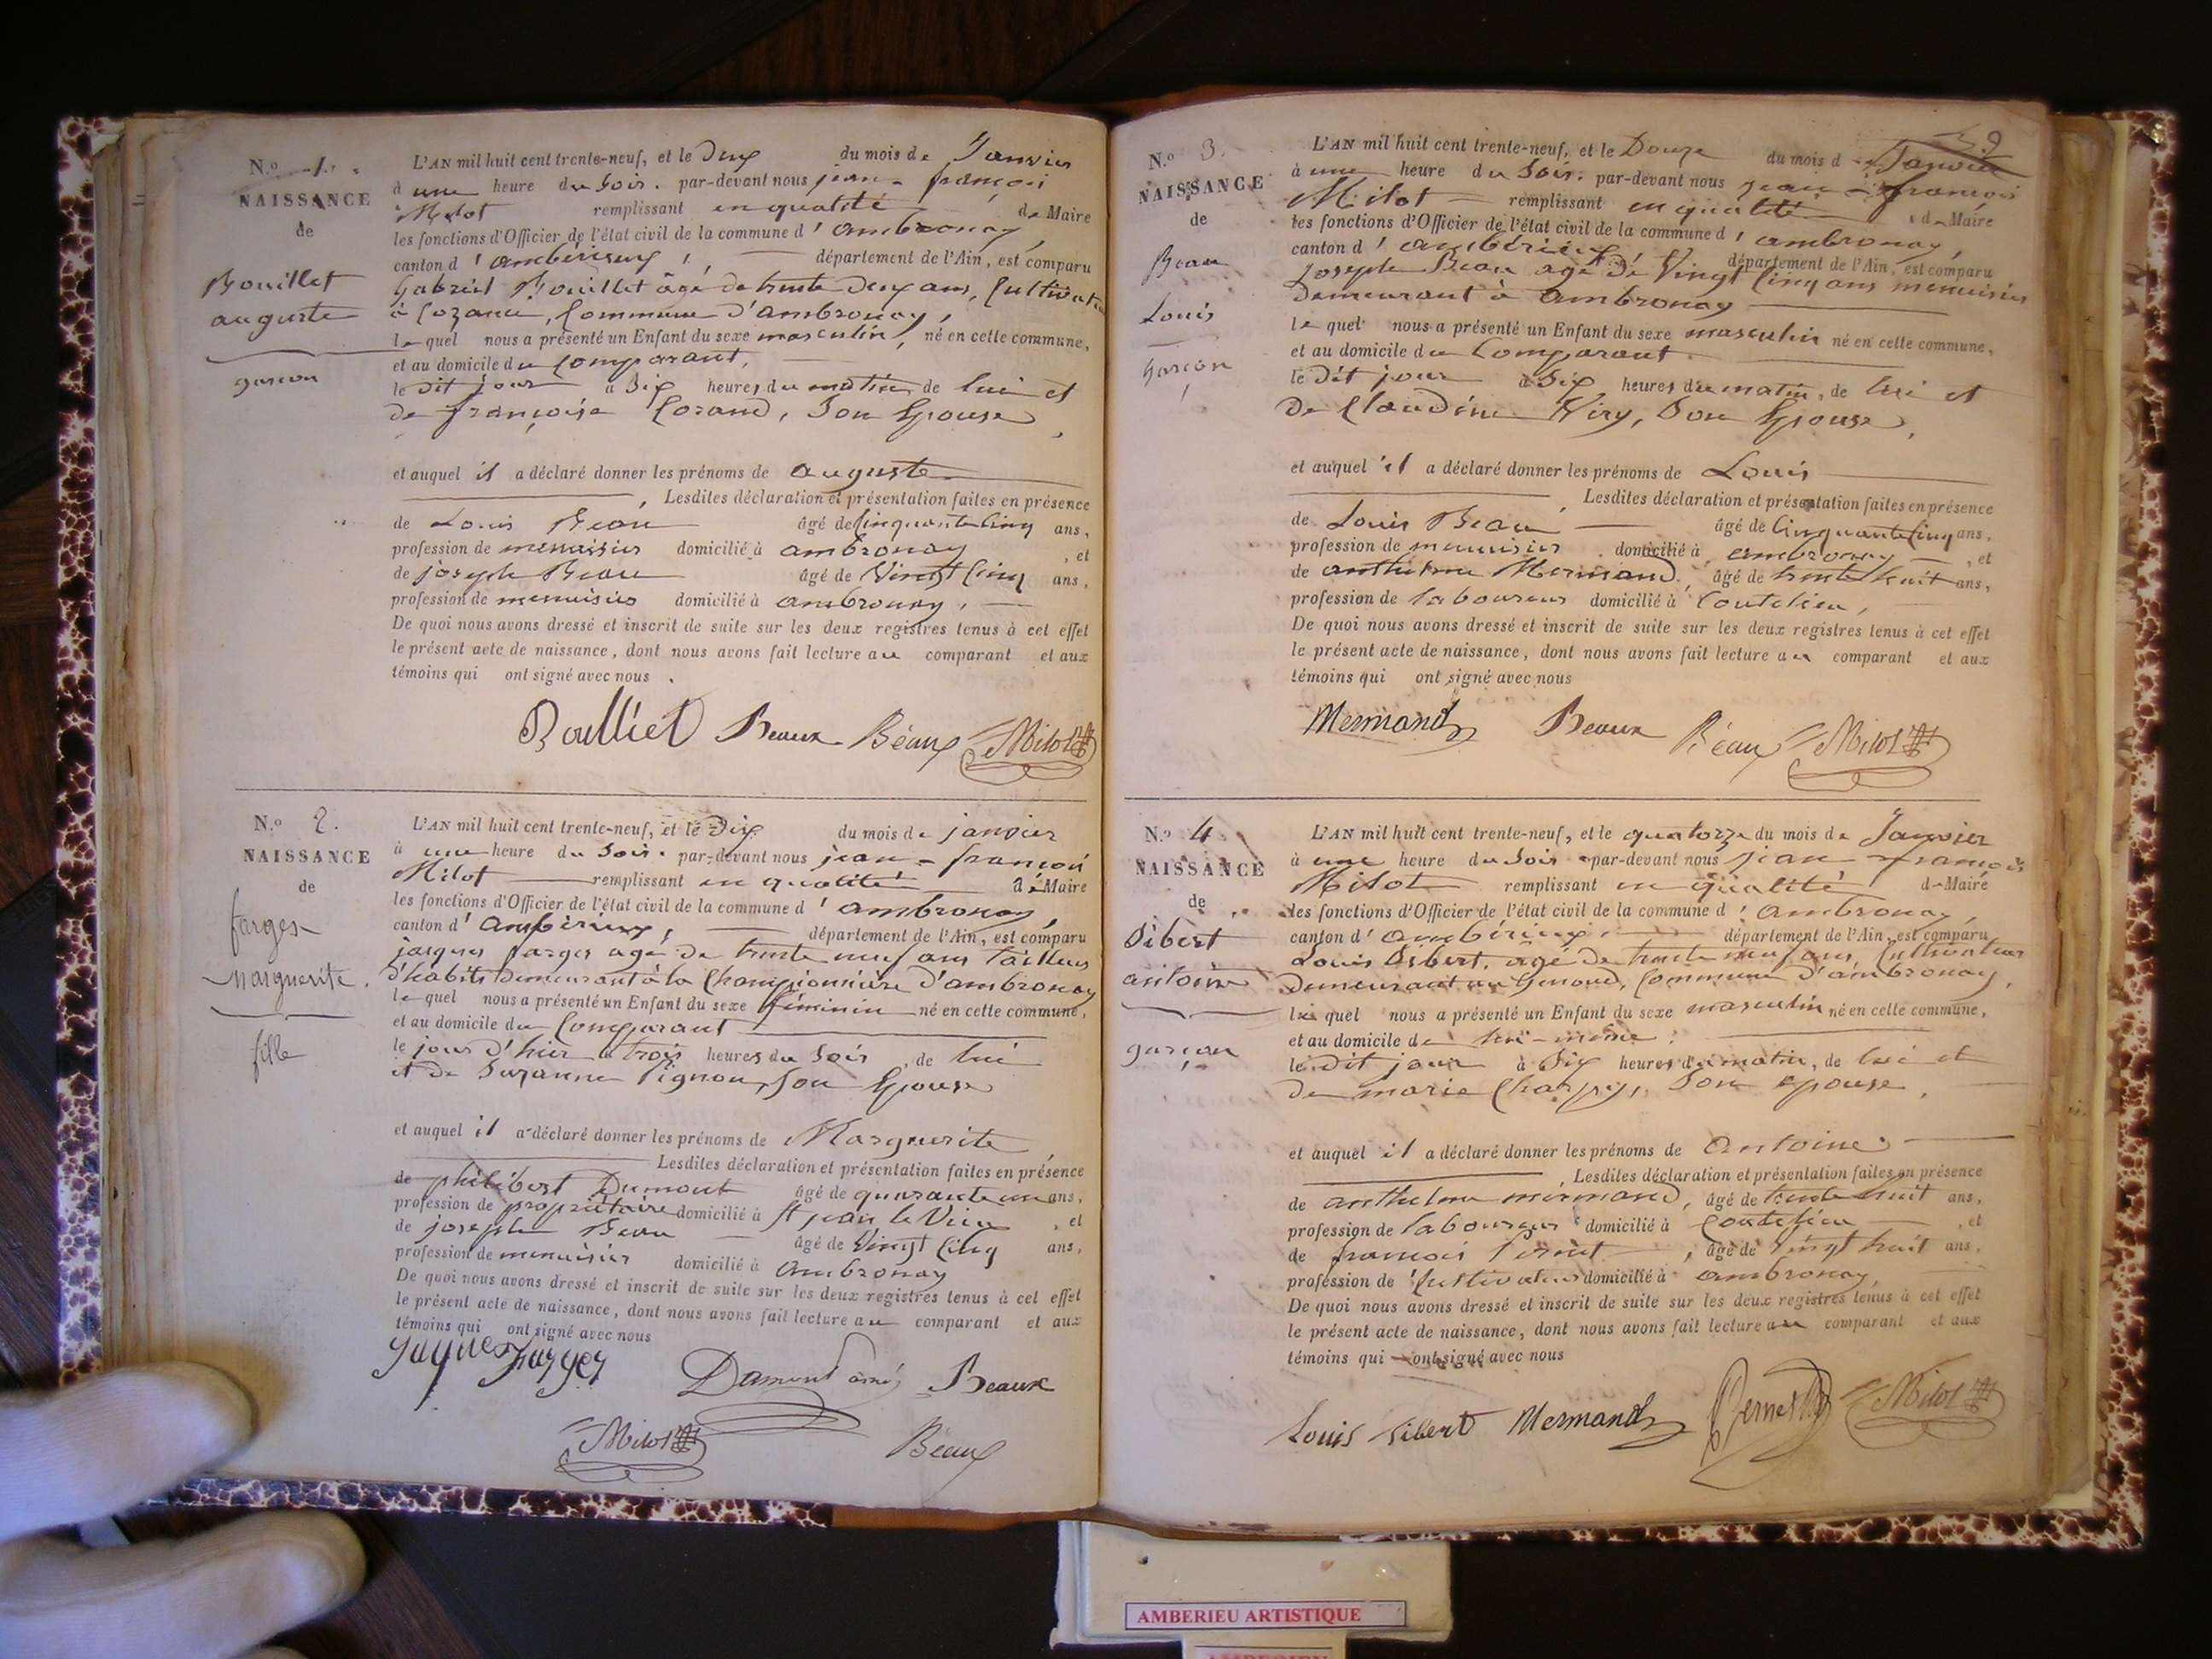 N.o 1.
NAISSANCE
de
Bouillet
auguste
garçon
L'AN mil huit cent trente-neuf, et le Deux du mois de Janvier
à une heure du Soir. par-devant nous jean-françois
Milot remplissant en qualité de Maire
les fonctions d'Officier de l'état civil de la commune d'ambronay,
canton d'ambérieux, département de l'Ain, est comparu
Gabriel Bouillet âgé de trente Deux ans, Cultivateur
à Cozance, Commune d'ambronay,
le quel nous a présenté un Enfant du sexe masculin, né en cette commune,
et au domicile du Comparant,
le dit jour à Six heures du matin de lui et
de françoise Cozand, Son Epouse,
et auquel il a déclaré donner les prénoms de auguste
, Lesdites déclaration et présentation faites en présence
de Louis Beau âgé de Cinquante Cinq ans,
profession de menuisier domicilié à ambronay, et
de joseph Beau âgé de Vingt Cinq ans,
profession de menuisier domicilié à ambronay,
De quoi nous avons dressé et inscrit de suite sur les deux registres tenus à cet effet
le présent acte de naissance, dont nous avons fait lecture au comparant et aux
témoins qui ont signé avec nous.
Boulliet Beaux Béaux Milot
N.o 2.
NAISSANCE
de
farges
Marguerite.
fille
L'AN mil huit cent trente-neuf, et le Dix du mois de janvier
à une heure du Soir. par-devant nous jean-françois
Milot remplissant en qualité de Maire
les fonctions d'Officier de l'état civil de la commune d'ambronay,
canton d'ambérieux, département de l'Ain, est comparu
jacques farges agé de trente neuf ans Tailleur
d'habits demeurant à la Championnière d'ambronay
le quel nous a présenté un Enfant du sexe féminin né en cette commune,
et au domicile du Comparant
le jour d'hier à trois heures du Soir, de lui
et de Suzanne Pignon, Son Epouse
et auquel il a déclaré donner les prénoms de Marguerite
Lesdites déclaration et présentation faites en présence
de philibert Dumont âgé de quarante un ans,
profession de propriétaire domicilié à St jean le Vieux, et
de joseph Beau âgé de Vingt Cinq ans,
profession de menuisier domicilié à Ambronay
De quoi nous avons dressé et inscrit de suite sur les deux registres tenus à cet effet
le présent acte de naissance, dont nous avons fait lecture au comparant et aux
témoins qui ont signé avec nous
Jaques Farges Dumont ainé Beaux
Milot Béaux
9
N.o 3.
NAISSANCE
de
Beau
Louis
Garçon
L'AN mil huit cent trente-neuf, et le Douze du mois de Janvier
à une heure du Soir. par-devant nous jean-françois
Milot remplissant en qualité de Maire
les fonctions d'Officier de l'état civil de la commune d'ambronay,
canton d'ambérieux, département de l'Ain, est comparu
Joseph Beau agé de Vingt Cinq ans menuisier
Demeurant à ambronay
le quel nous a présenté un Enfant du sexe masculin né en cette commune,
et au domicile du Comparant.
le dit jour à Six heures du matin, de lui et
de Claudine Viry, Son Epouse,
et auquel il a déclaré donner les prénoms de Louis
, Lesdites déclaration et présentation faites en présence
de Louis Beau âgé de Cinquante Cinq ans,
profession de menuisier domicilié à ambronay, et
de anthelme Mermand, âgé de trente huit ans,
profession de laboureur domicilié à Coutelieu,
De quoi nous avons dressé et inscrit de suite sur les deux registres tenus à cet effet
le présent acte de naissance, dont nous avons fait lecture au comparant et aux
témoins qui ont signé avec nous
Mermand Beaux Béaux Milot
N.o 4
NAISSANCE
de
Sibert
antoine
garçon
L'AN mil huit cent trente-neuf, et le quatorze du mois de Janvier
à une heure du Soir par-devant nous jean-françois
Milot remplissant en qualité de Maire
les fonctions d'Officier de l'état civil de la commune d'ambronay,
canton d'ambérieux, département de l'Ain, est comparu
Louis Sibert, agé de trente neuf ans, Cultivateur
Demeurant au Genoud, Commune d'ambronay,
le quel nous a présenté un Enfant du sexe masculin né en cette commune,
et au domicile de lui-même;
le dit jour à Six heures du matin, de lui et
de marie Charpy, Son epouse,
et auquel il a déclaré donner les prénoms de antoine.
, Lesdites déclaration et présentation faites en présence
de anthelme mermand, âgé de trente huit ans,
profession de laboureur domicilié à Coutelieu, et
de françois, âgé de Vingt huit ans,
profession de Cultivateur domicilié à ambronay,
De quoi nous avons dressé et inscrit de suite sur les deux registres tenus à cet effet
le présent acte de naissance, dont nous avons fait lecture au comparant et aux
témoins qui ont signé avec nous
Louis Sibert Mermand Milot
AMBERIEU ARTISTIQUE